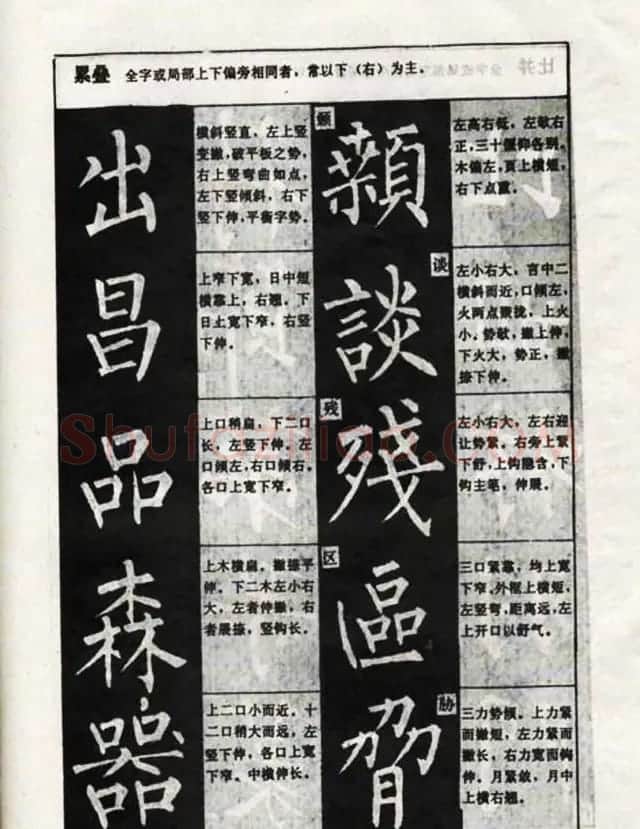 累叠 全字或局部上下偏旁相同者，常以下（右）为主．
出
横斜竖直，左上竖
变撇，破平板之势，
右上竖弯曲如点，
左下竖倾斜，右下
竖下伸，平衡字势。
昌
上窄下宽，日中短
横靠上，右翘。下
日上宽下窄，右竖
下伸。
品
上口稍扁，下二口
长，左竖下伸，左
口倾左，右口倾右。
各口上宽下窄。
森
上木横扁。撇捺平
伸。下二木左小右
大，左者伸撇，右
者展捺，竖钩长。
器
上二口小而近。十
二口稍大而远，左
竖下伸，各口上宽
下窄。中横伸长。
左高右低，左欹右
正，三十偃仰各别。
木偏左，頁上横短，
右下点重。
谈
談
左小右大，言中二
横斜而近，口倾左，
火两点聚拢，上火
小。势欹，撇上伸，
下火大，势正，撇
捺下伸。
残
殘
左小右大，左右迎
让势紧。右旁上紧
下舒，上钩隐含，下
钩主笔，伸展。
区
區
三口紧靠，均上宽
下窄，外框上横短，
左竖弯，距离远，左
上开口以舒气。
胁
脅
三力势倾。上力紧
而撇短，左力紧而
撇长，右力宽而钩
伸。月紧敛，月中
上横右翘。
Shufaziliao.com